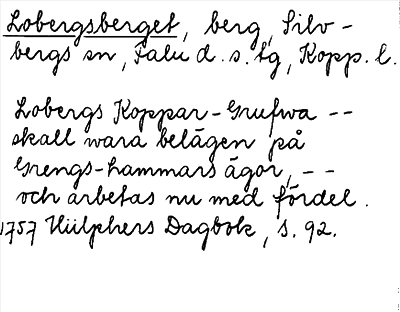 Lobergsberget, berg, Silv-
bergs sn, Falu d. s. tg, Kopp. l.
Lobergs Koppar-Grufwa --
skall wara belägen på
Grengs-hammars ägor, --
och arbetas nu med fördel.
1757 Hülphers Dagbok, s. 92.